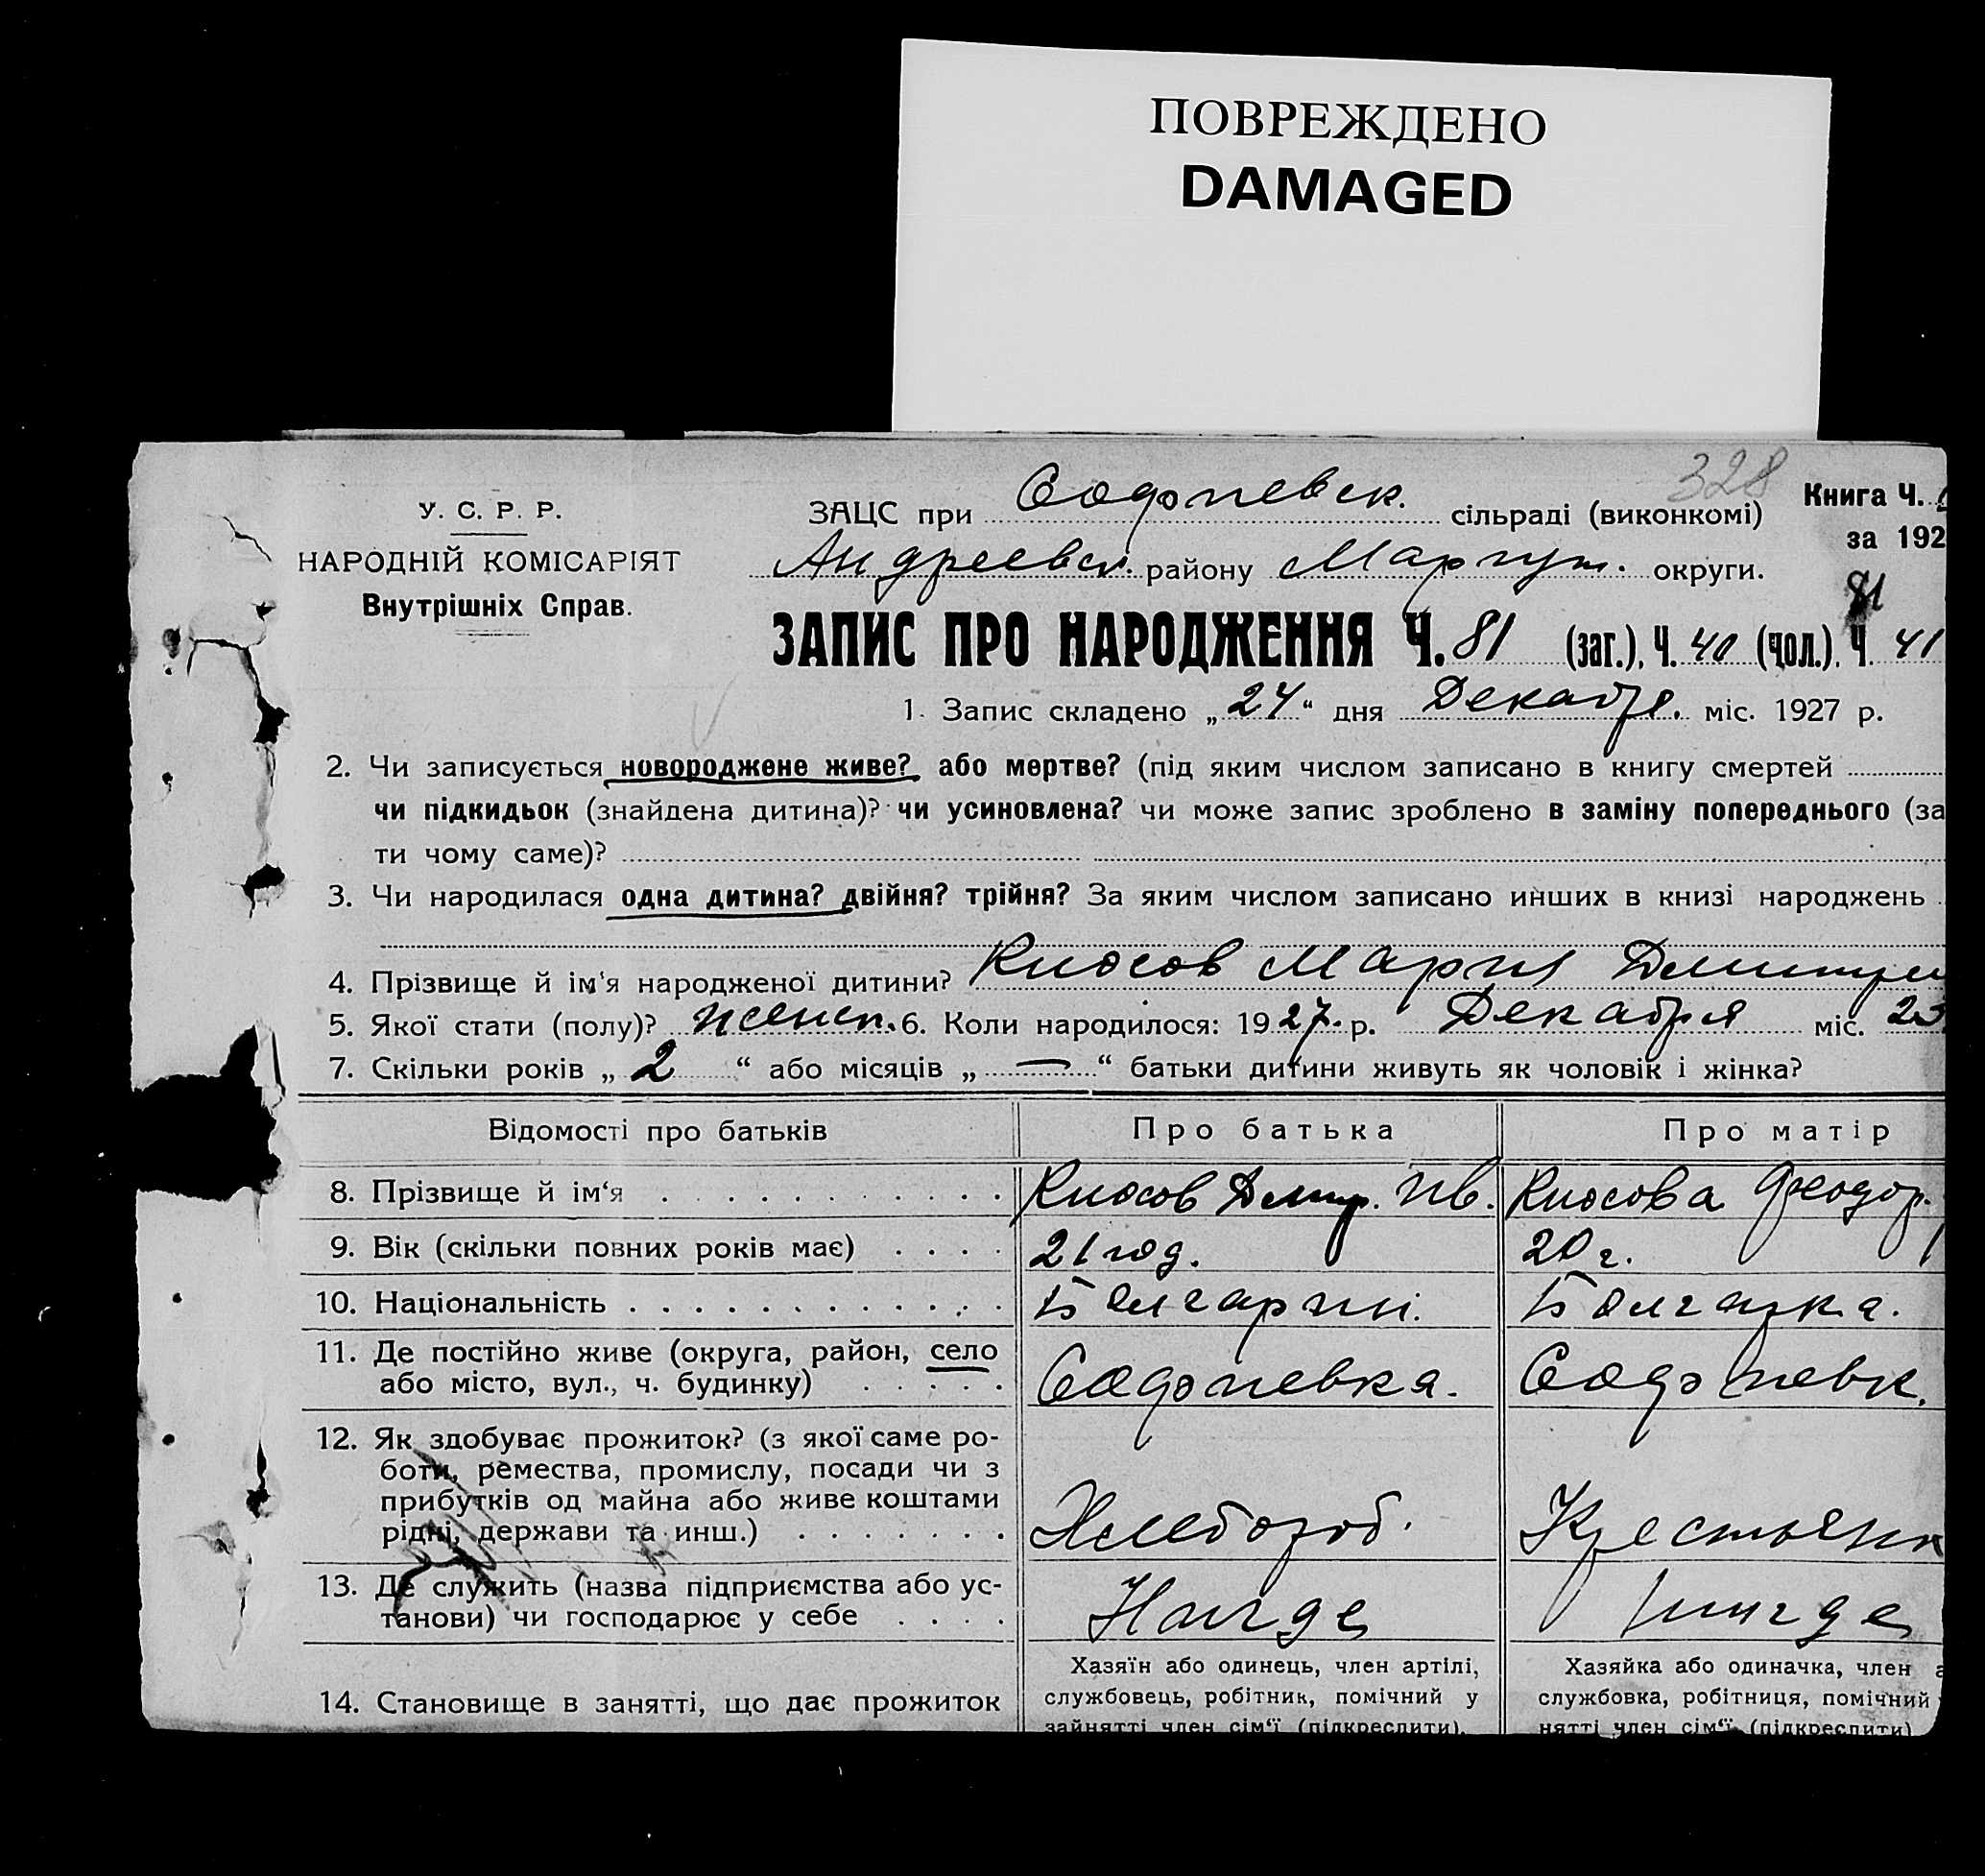 ПОВРЕЖДЕНО
DAMAGED
328
У. С. Р. Р.
НАРОДНІЙ КОМІСАРІЯТ
Внутрішніх Справ.
ЗАЦС при сільраді (виконкомі)
Книга Ч.
за 192
Андреевск. району Мариуп. округи.
81
ЗАПИС ПРО НАРОДЖЕННЯ Ч. 81 (заг.), Ч. 40 (чол.). Ч 41
1. Запис складено „24“ дня Декабря. міс. 1927 р.
2. Чи записується новороджене живе? або мертве? (під яким числом записано в книгу смертей
чи підкидьок (знайдена дитина)? чи усиновлена? чи може запис зроблено в заміну попереднього (за
ти чому саме)?
3. Чи народилася одна дитина? двійня? трійня? За яким числом записано инших в книзі народжень
4. Прізвище й ім‘я народженої дитини? Кюсов Мария Дмитри
5. Якої стати (полу)? женск. 6. Коли народилося: 1927. р. Декабря міс. 23
7. Скільки років „2“ або місяців „—“ батьки дитини живуть як чоловік і жінка?
Відомості про батьків Про батька Про матір
8. Прізвище й ім‘я Кюсов Дмитр. Ив. Кюсова Феодор.
9. Вік (скільки повних років має) 21 год. 20 г.
10. Національність Болгарин. Болгарка.
11. Де постійно живе (округа, район, село
або місто, вул., ч. будинку)
12. Як здобуває прожиток? (з якої саме ро-
боти, ремества, промислу, посади чи з
прибутків од майна або живе коштами
рідні, держави та инш.) Хлебороб. Крестьянк
13. Де служить (назва підприємства або ус-
танови) чи господарює у себе Нигде нигде
14. Становище в занятті, що дає прожиток
Хазяїн або одинець, член артілі,
службовець, робітник, помічний у
зайнятті член сім‘ї (підкреслити).
Хазяйка або одиначка, член а
службовка, робітниця, помічний
нятті член сім‘ї (підкреслити)